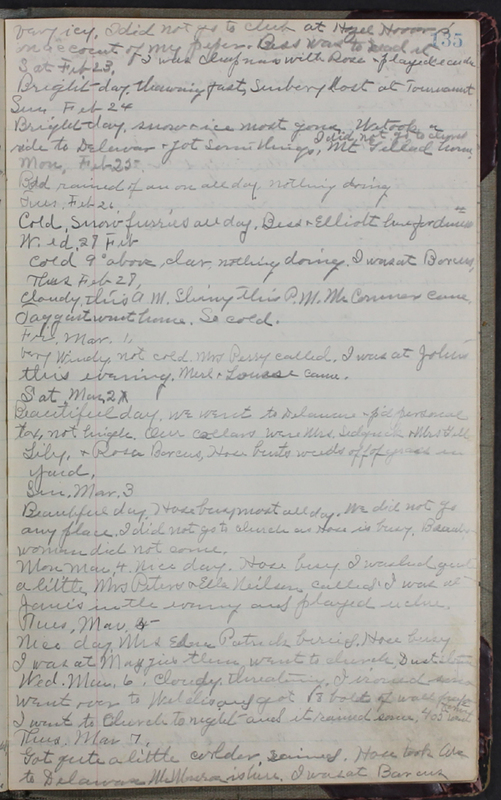 very icy, I did not go to club at Hazel Hoover's
on account of my fever. Bess was to read it
135
I was sleeping with Rose & played euchre
Sat Feb 23,
Bright day, thawing fast, Sunbery lost at Tournament
Sun Feb 24
Bright day, snow & ice most gone, We took a
I did not go to church
ride to Delaware & got some things, Mt Gilead
Mon, Feb 25.
Cold rained if an on all day, nothing doing
Tues, Feb 26
Cold, Snow furries all day, Bess & Elliott here for dinner
Wed, 27 Feb
Cold 9° above, clar, nothing doing. I was at Barcus,
Thurs Feb 28,
Cloudy this A.M. Shiny this P.M. Mr Conner came
Taggart went home. So cold.
Fri, Mar. 1,
Very Windy, not cold. Mrs Perry called. I was at John's
this evening. Merl & Louise came.
Sat, Mar 2
Beautiful day. We went to Delaware & p'd personal
tax, not high. Our callers were Mrs. Sedgwick & Mrs Hall
Lily, & Rosa Barcus, Hose burts weeds off of grass in
yard.
Sun. Mar. 3
Beautiful day, Hose busy most all day. We did not go
any place. I did not go to church as Hose is busy.
woman did not come.
Mon Mar, 4. Nice day. Hose busy I washed quit
a little Mrs Peters & Ella Neilson called. I was at
Janie's in the evening and played uchre.
Tues, Mar, 5
Nice day Mrs Edna Patrick buried. Hose busy
I was at Maggies then went to church,
Wed. Mar. 6, Cloudy, threatning. I ironed some
went over to and got 13 bolts of wall paper
I went to Church to night and it rained some,
Thurs, Mar 7,
Got quite a little colder, rained. Hose took
to Delaware is here. I was at Barcus